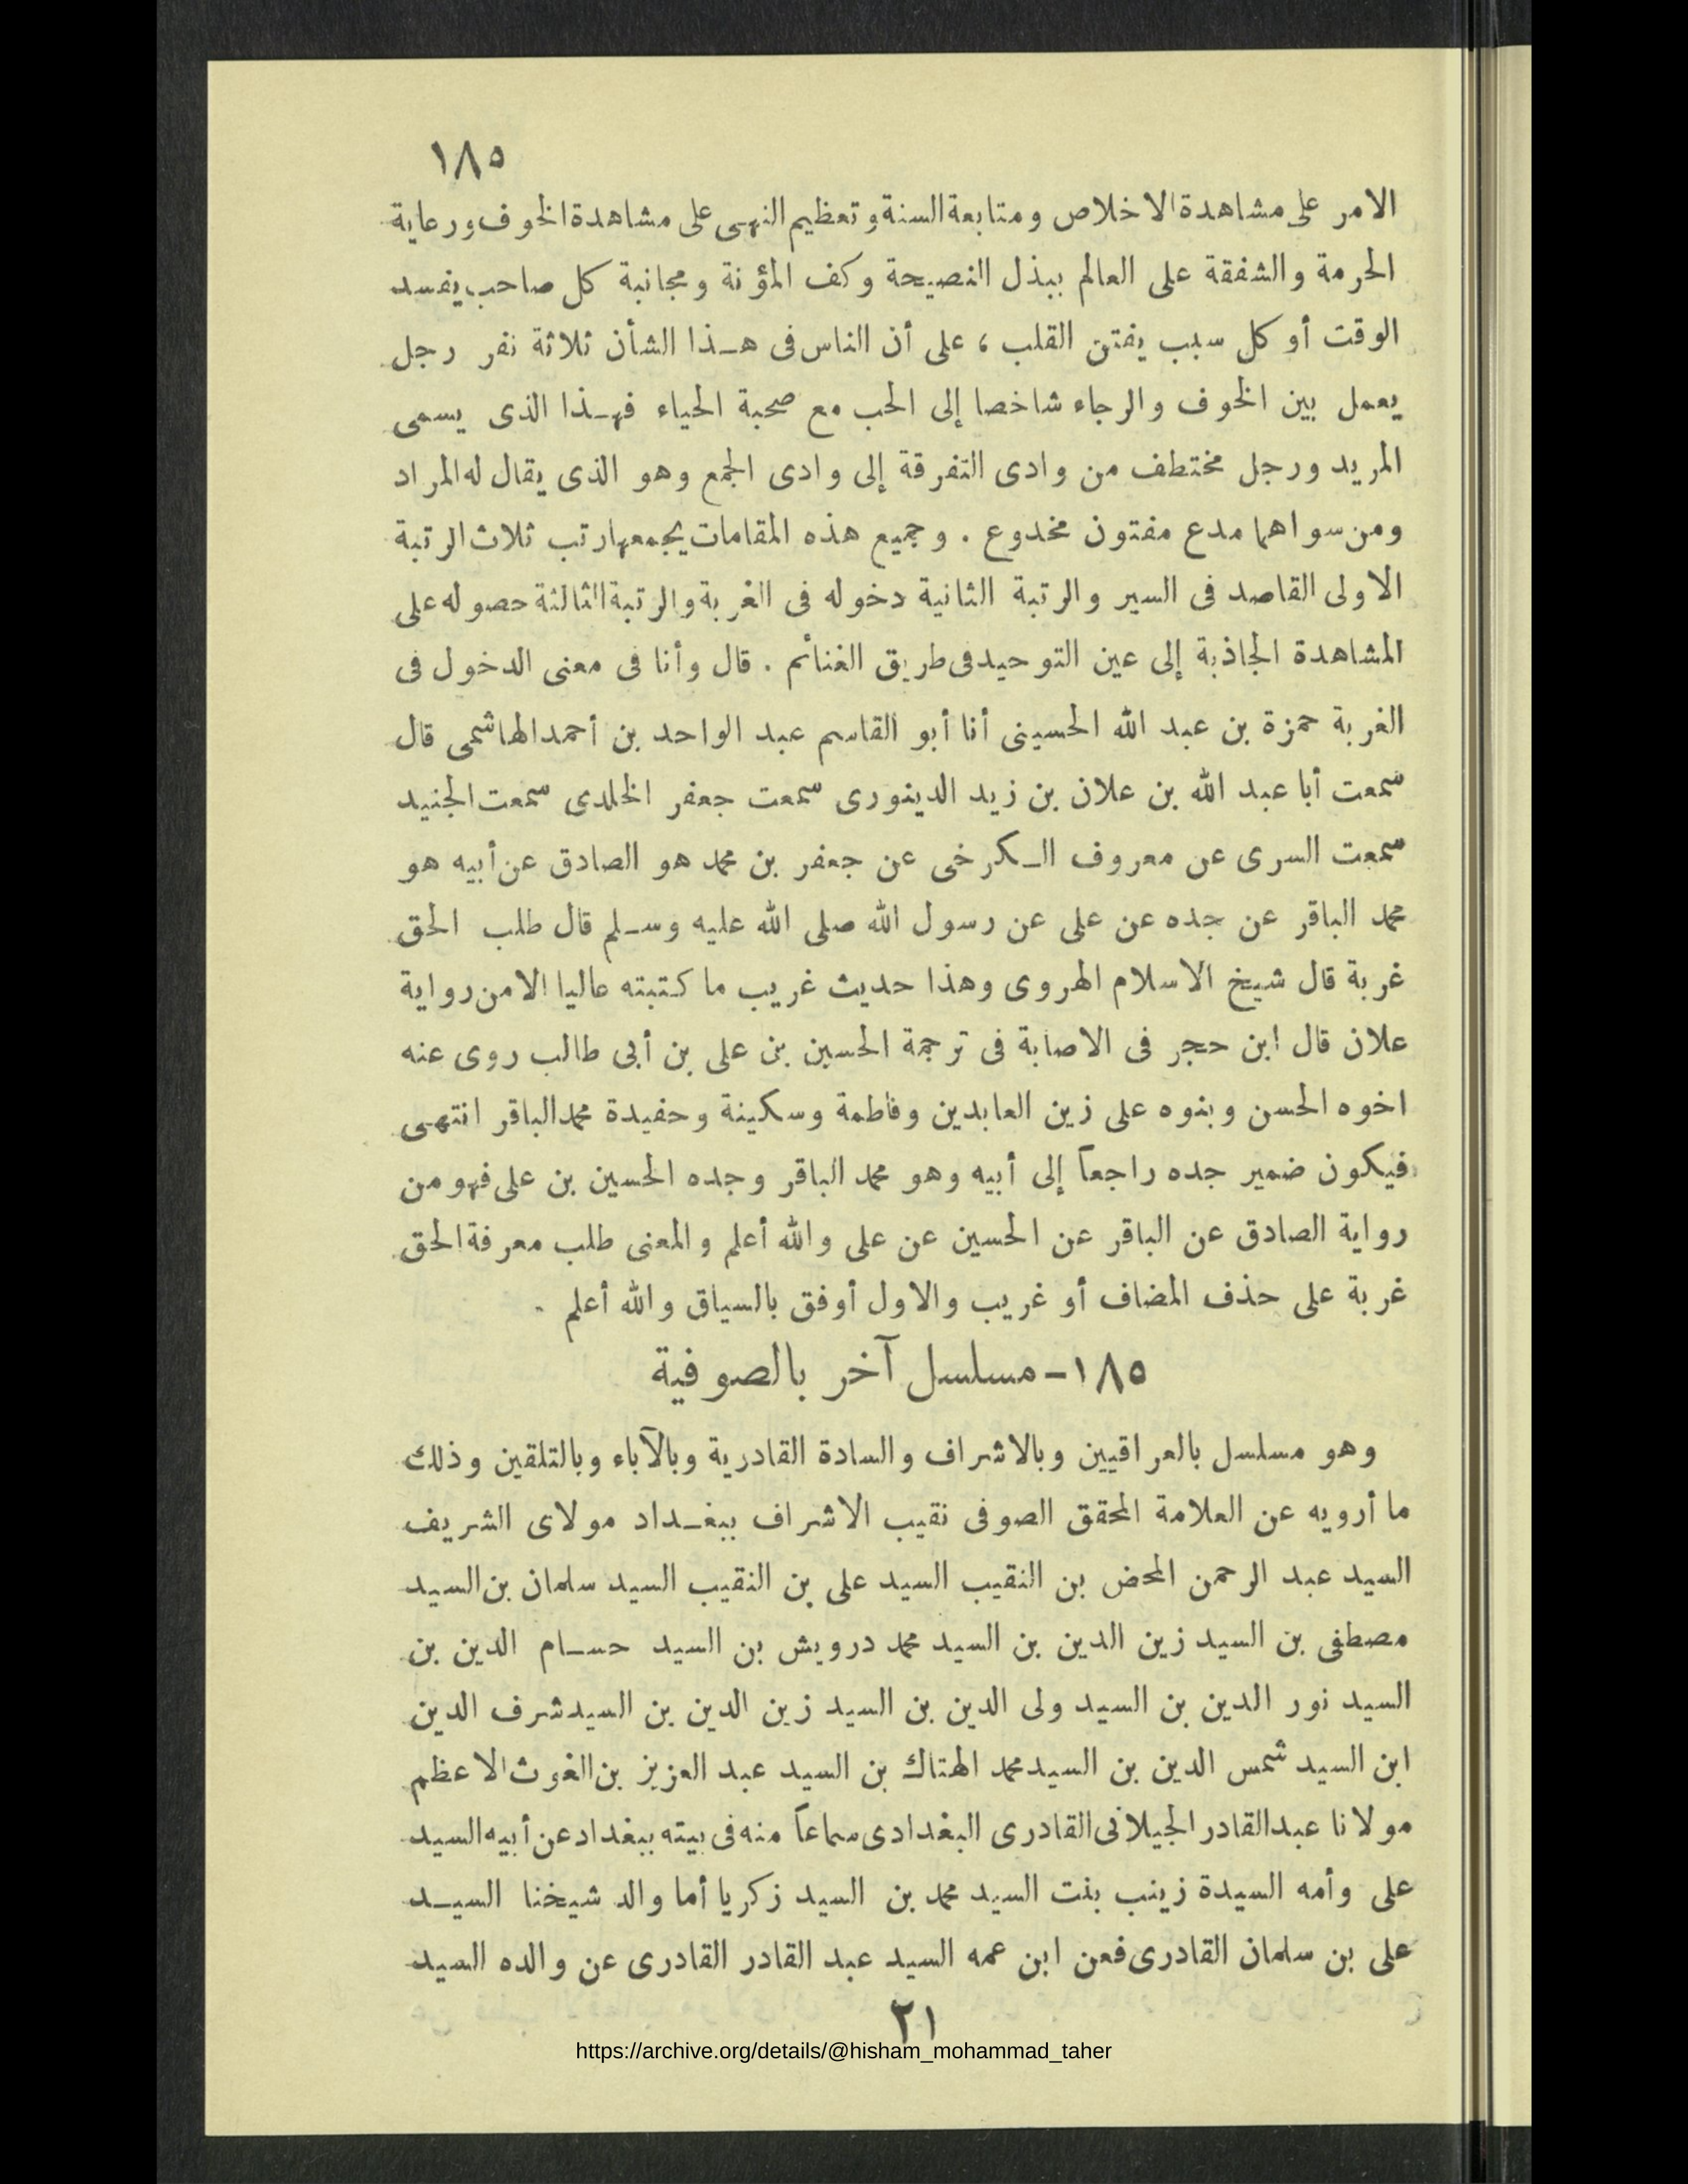 ١٨٥
الامر على مشاهدة الاخلاص ومتابعة السنة وتعظيم النهى على مشاهدة الخوف ورعاية
الحرمة والشفقة على العالم ببذل النصيحة وكف المؤنة ومجانبة كل صاحب يفسد
الوقت أو كل سبب يفتن القلب ، على أن الناس فى هـذا الشأن ثلاثة نفر رجل
يعمل بين الخوف والرجاء شاخصا إلى الحب مع صحبة الحياء فهـذا الذى يسمى
المريد ورجل مختطف من وادى التفرقة إلى وادى الجمع وهو الذى يقال له المراد
ومن سواهما مدع مفتون مخدوع . وجميع هذه المقامات يجمعها رتب ثلاث الرتبة
الاولى القاصد فى السير والرتبة الثانية دخوله فى الغربة والرتبة الثالثة حصوله على
المشاهدة الجاذبة إلى عين التوحيد فى طريق الغنائم . قال وأنا فى معنى الدخول فى
الغربة حمزة بن عبد الله الحسينى أنا أبو القاسم عبد الواحد بن أحمد الهاشمى قال
سمعت أبا عبد الله بن علان بن زيد الدينورى سمعت جعفر الخلدى سمعت الجنيد
سمعت السرى عن معروف الـكرخى عن جعفر بن محمد هو الصادق عن أبيه هو
محمد الباقر عن جده عن على عن رسول الله صلى الله عليه وسـلم قال طلب الحق
غربة قال شيخ الاسلام الهروى وهذا حديث غريب ما كتبته عاليا الا من رواية
علان قال ابن حجر فى الاصابة فى ترجمة الحسين بن على بن أبى طالب روى عنه
اخوه الحسن وبنوه على زين العابدين وفاطمة وسكينة وحفيدة محمد الباقر انتهى
فيكون ضمير جده راجعاً إلى أبيه وهو محمد الباقر وجده الحسين بن على فهو من
رواية الصادق عن الباقر عن الحسين عن على والله أعلم والمعنى طلب معرفة الحق
غربة على حذف المضاف أو غريب والاول أوفق بالسياق والله أعلم .
١٨٥ - مسلسل آخر بالصوفية
وهو مسلسل بالعراقيين وبالاشراف والسادة القادرية وبالآباء وبالتلقين وذلك
ما أرويه عن العلامة المحقق الصوفى نقيب الاشراف ببغـداد مولاى الشريف
السيد عبد الرحمن المحض بن النقيب السيد على بن النقيب السيد سلمان بن السيد
مصطفى بن السيد زين الدين بن السيد محمد درويش بن السيد حسـام الدين بن
السيد نور الدين بن السيد ولى الدين بن السيد زين الدين بن السيد شرف الدين
ابن السيد شمس الدين بن السيد محمد الهتاك بن السيد عبد العزيز بن الغوث الاعظم
مولانا عبد القادر الجيلانى القادرى البغدادى سماعاً منه فى بيته ببغداد عن أبيه السيد
على وأمه السيدة زينب بنت السيد محمد بن السيد زكريا أما والد شيخنا السيـد
على بن سلمان القادرى فعن ابن عمه السيد عبد القادر القادرى عن والده السيد
٢١
https://archive.org/details/@hisham_mohammad_taher